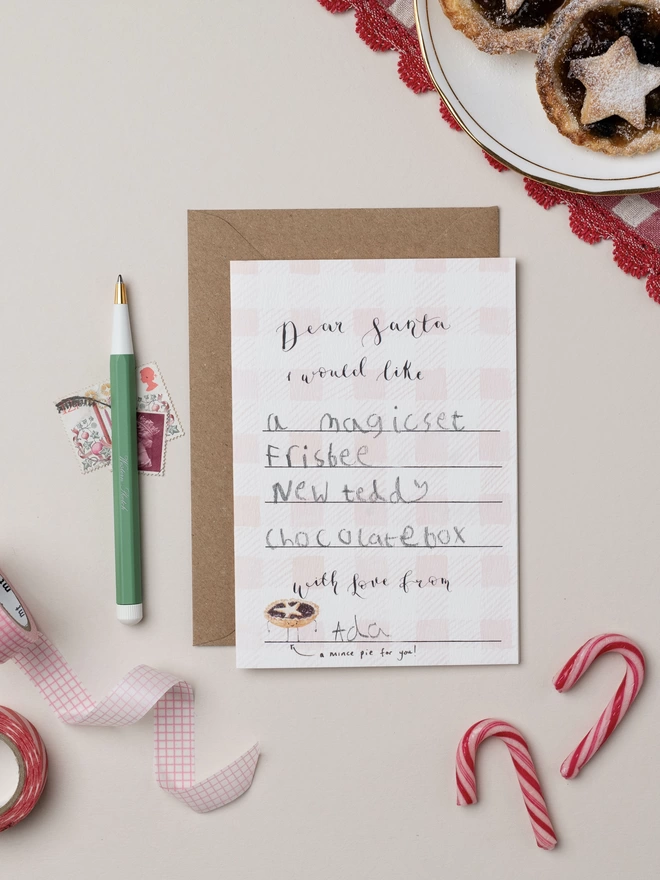 Dear Santa
i would like
a magic set
Frisbee
New teddy
chocolate box
with love from
Ada
a mince pie for you!
mt